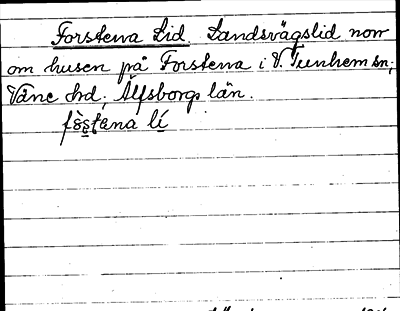 Forstena Lid. Landsvägslid norr
om husen på Forstena i V. Tunhem sn;
Väne hd; Älfsborgs län.
fòs̥tεna lí